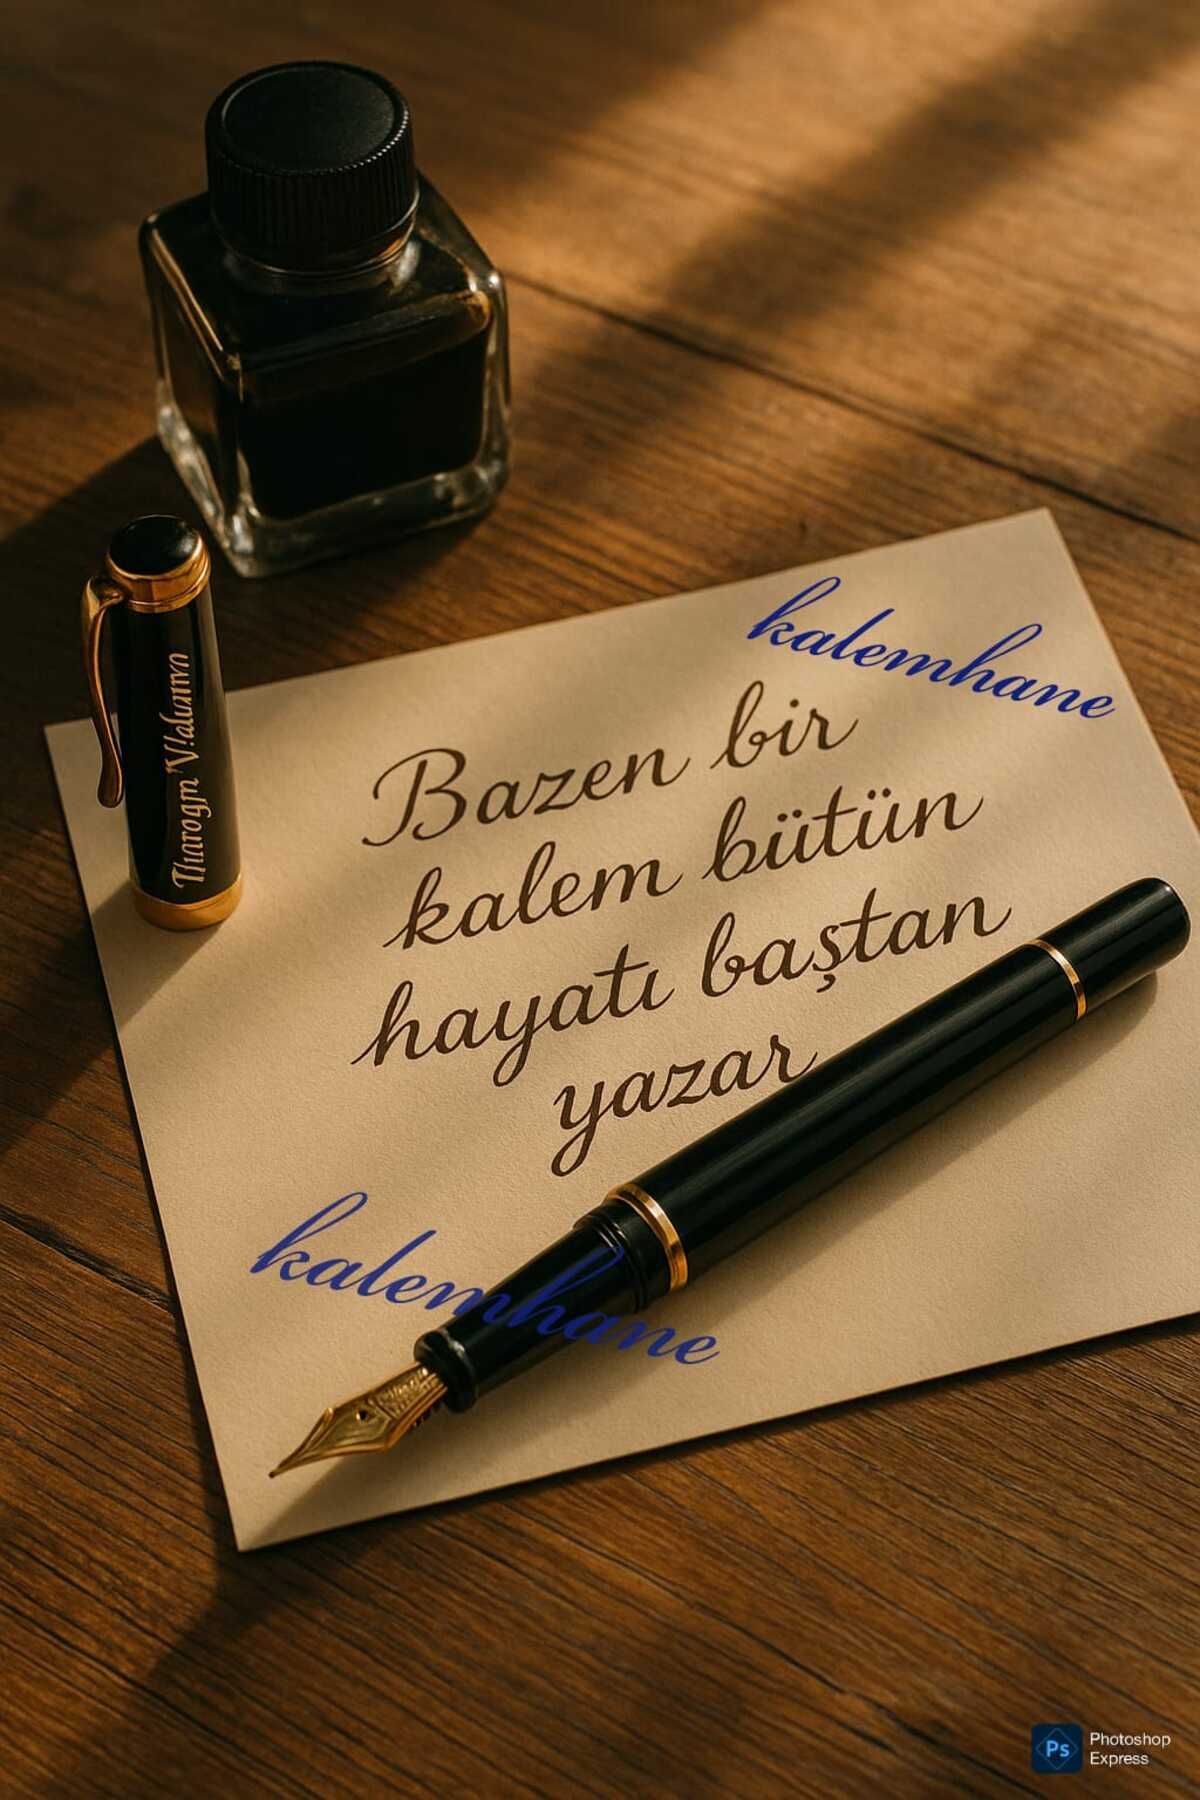 kalemhane
Bazen bir
kalem bütün
hayatı baştan
yazar
kalemhane
Ps
Photoshop
Express